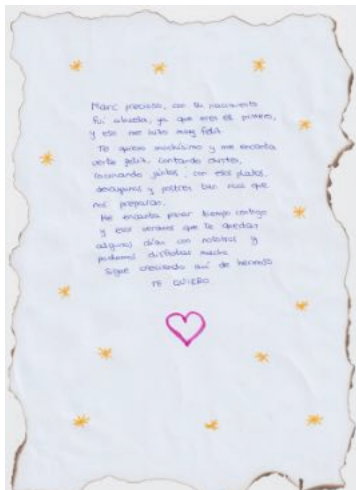 Marc precioso, con tu nacimiento
fui abuela, ya que eres el primero,
y eso me hizo muy feliz.
Te quiero muchísimo y me encanta
verte feliz, contando chistes,
cocinando juntos, con esos platos,
desayunos y postres tan ricos que
nos preparas.
Me encanta pasar tiempo contigo
y esos veranos que te quedas
algunos días con nosotros y
podemos disfrutar mucho.
Sigue creciendo así de hermoso
TE QUIERO